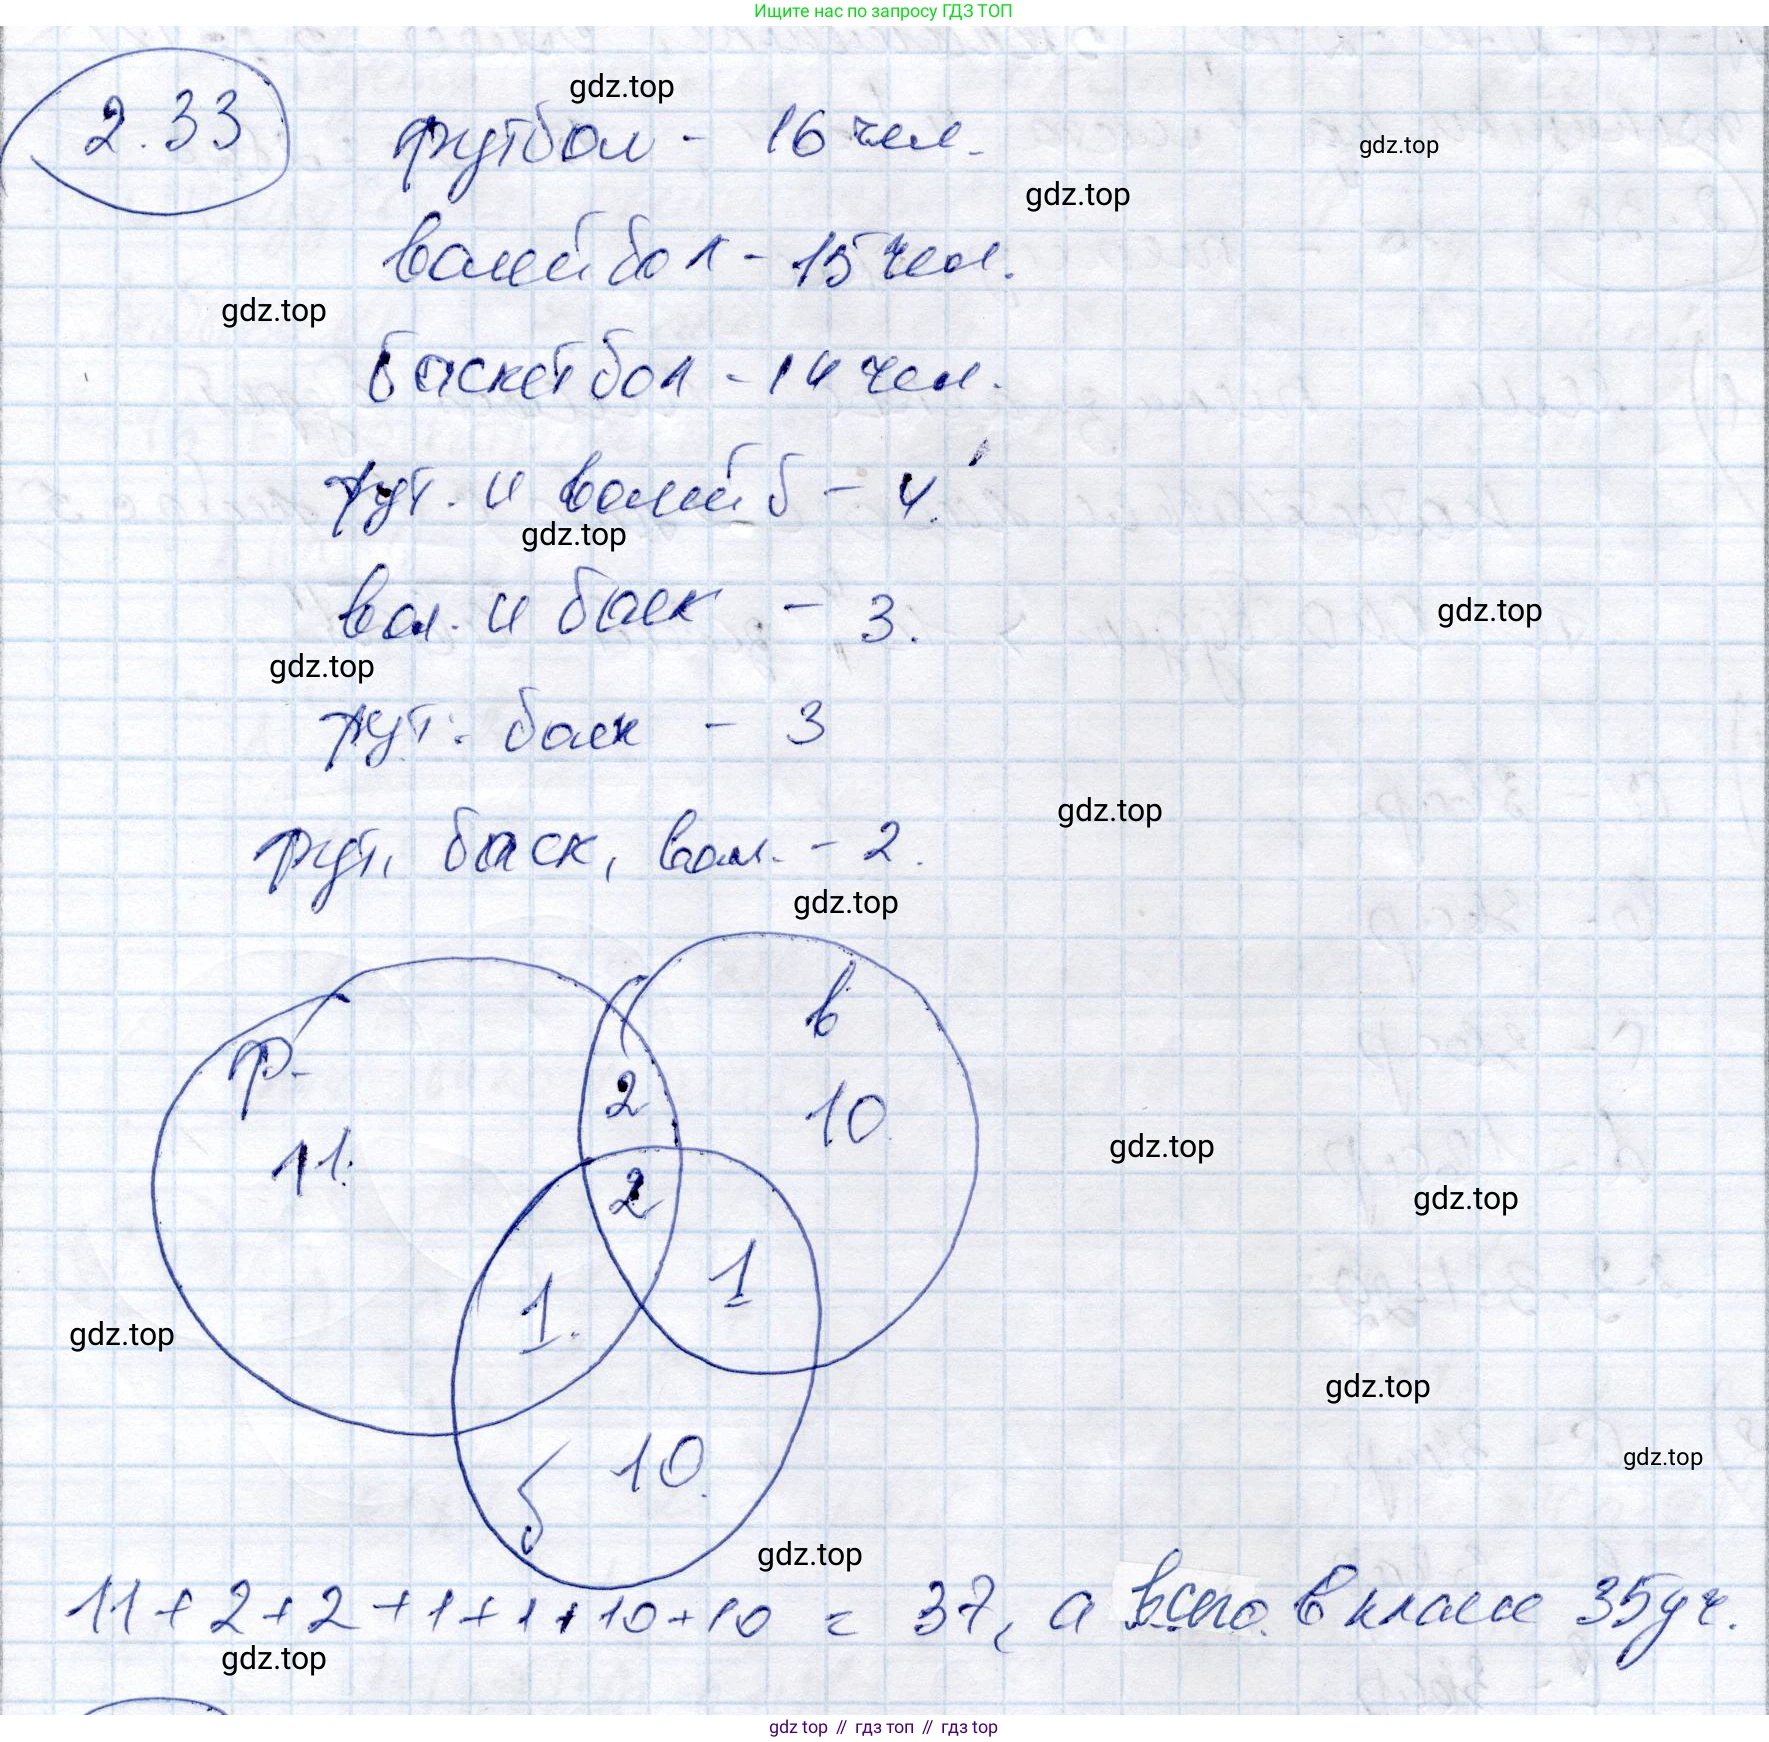 Ищите нас по запросу ГДЗ ТОП
2.33
футбол - 16 чел.
gdz.top
gdz.top
gdz.top
волейбол - 15 чел.
gdz.top
баскетбол - 14 чел.
фут. и волейб - 4.
gdz.top
вол. и баск - 3.
gdz.top
gdz.top
фут. баск - 3
фут, баск, вол. - 2.
gdz.top
gdz.top
ф.
в
11.
2
10
2
gdz.top
gdz.top
1.
1
gdz.top
gdz.top
б
10.
gdz.top
gdz.top
11 + 2 + 2 + 1 + 1 + 10 + 10 = 37, а всего в классе 35 уч.
gdz.top
gdz top // гдз топ // gdz top